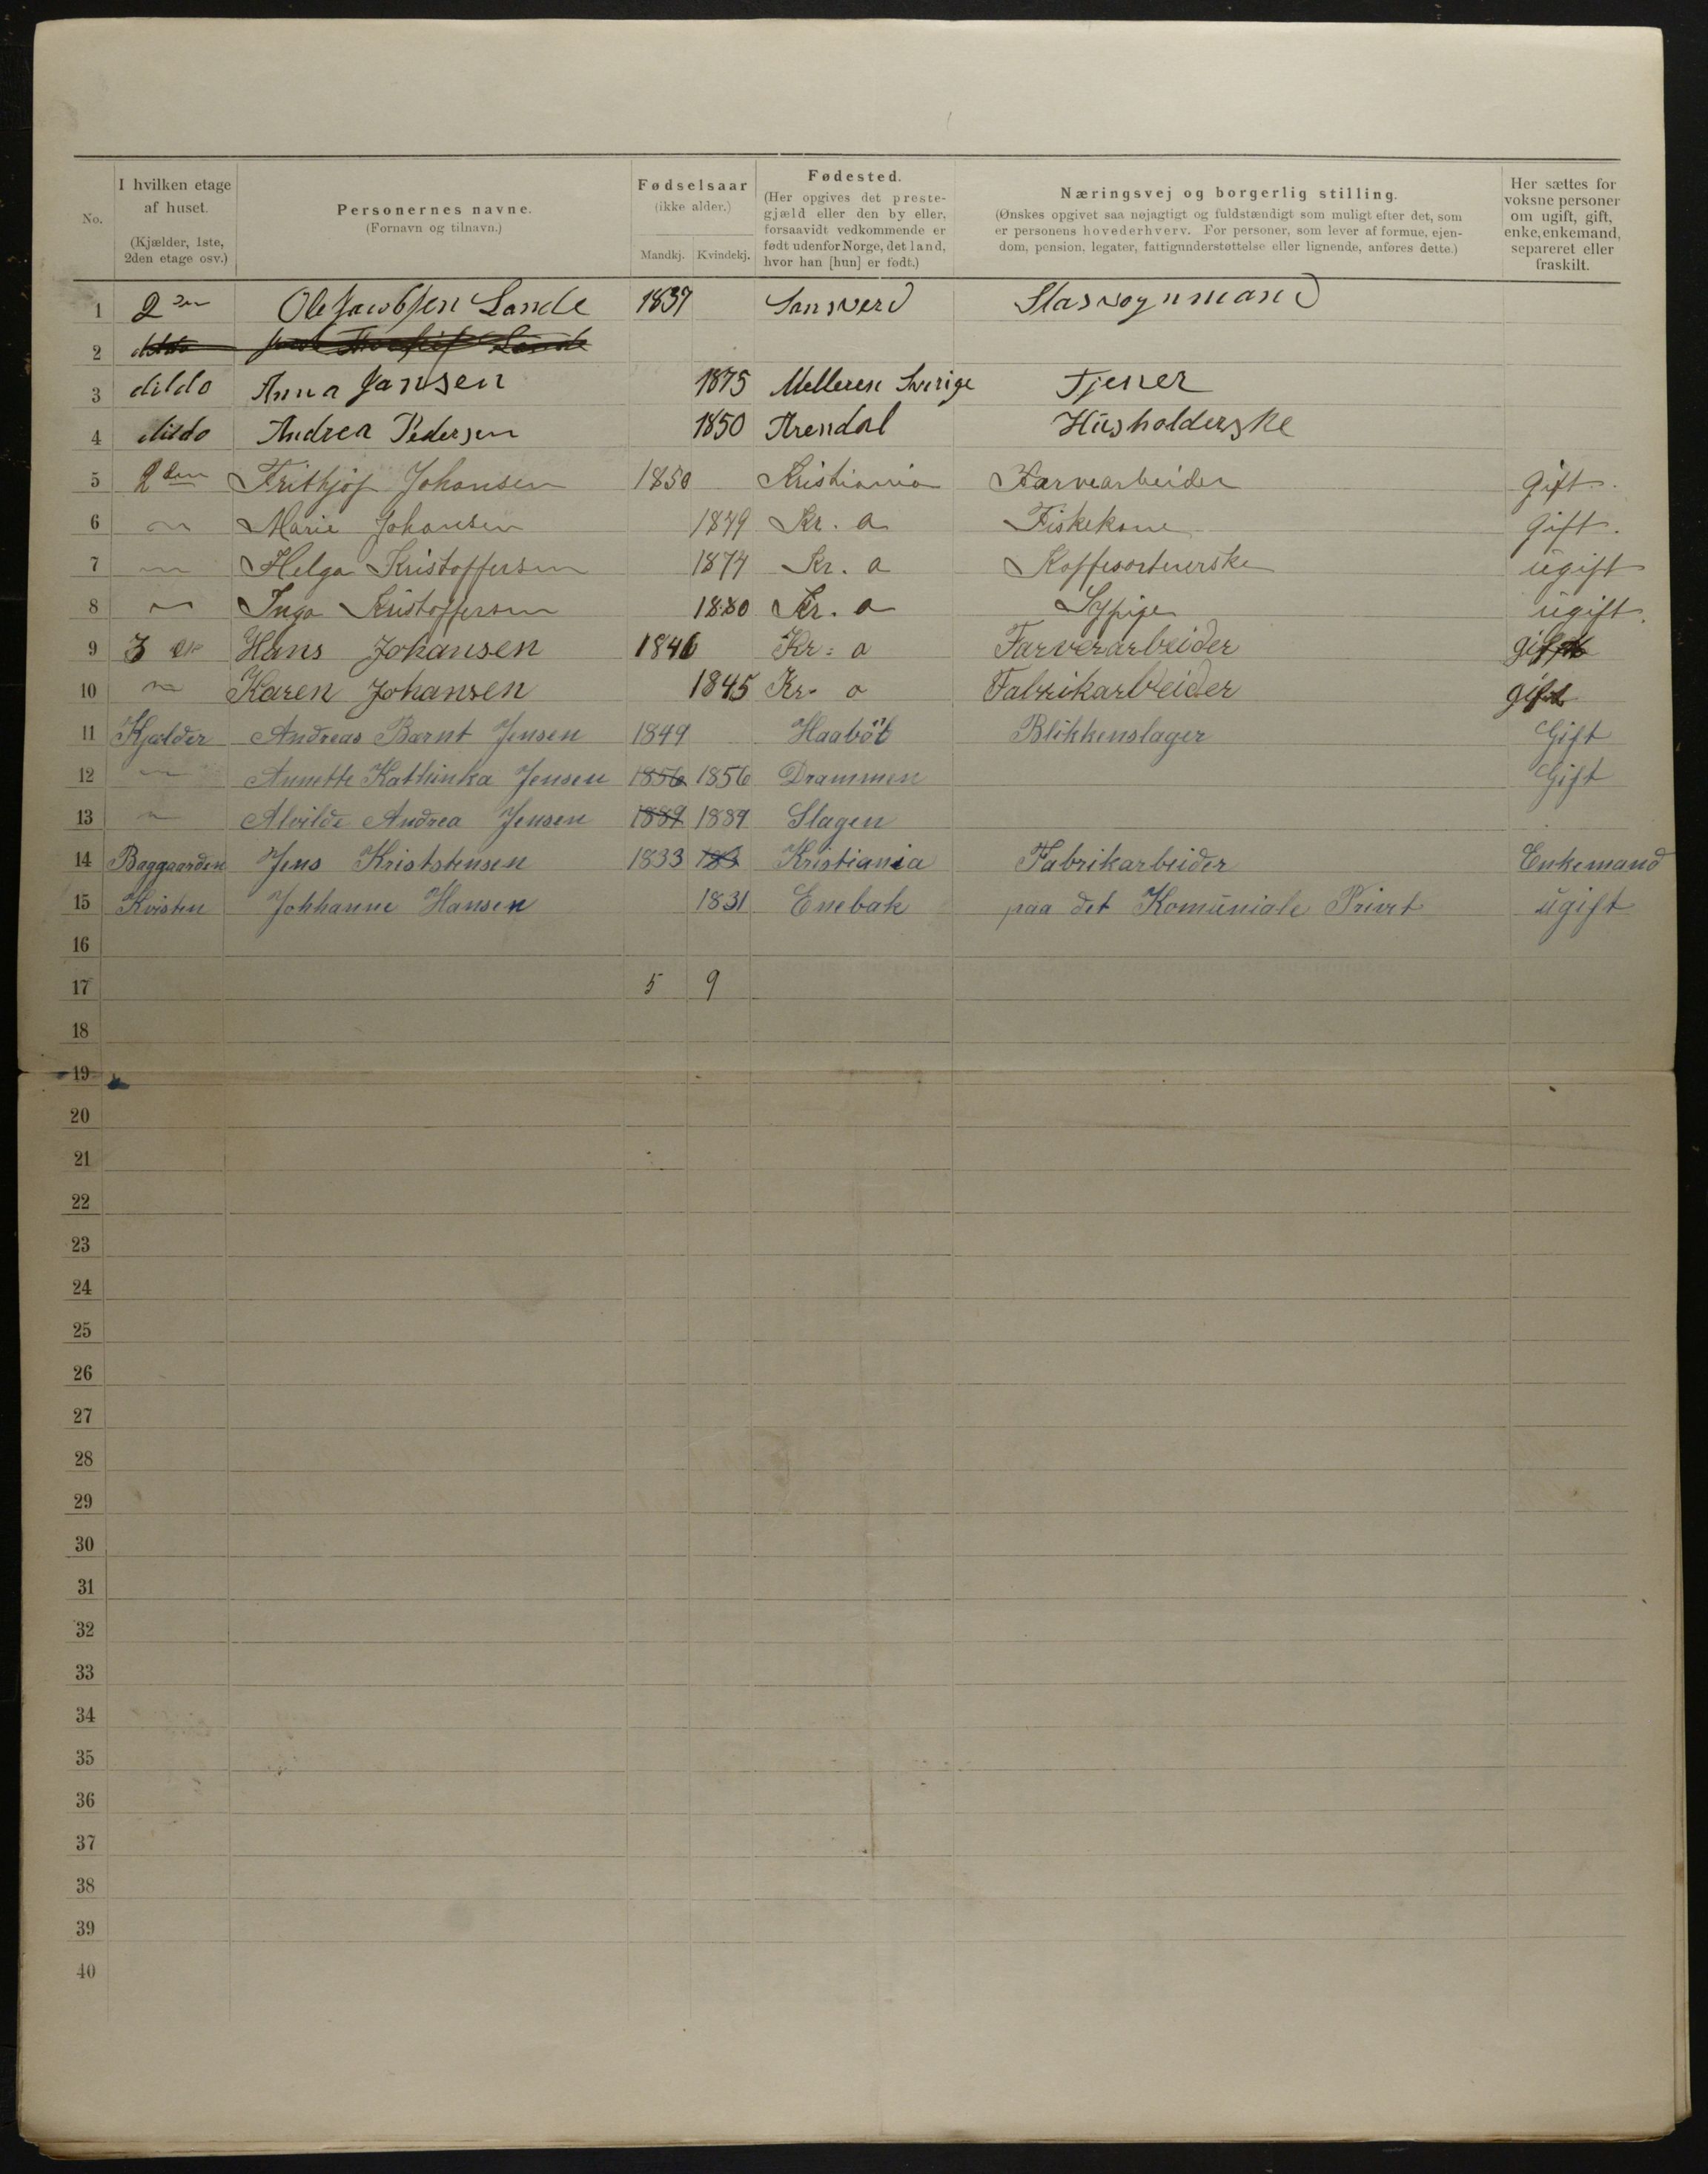 No.	I hvilken etage af huset. (Kjælder, 1ste, 2den etage osv.)	Personernes navne. (Fornavn og tilnavn.)	Fødselsaar (ikke alder.) Mandkj. Kvindekj.	Fødested. (Her opgives det prestegjæld eller den by eller, forsaavidt vedkommende er født udenfor Norge, det land, hvor han [hun] er født.)	Næringsvej og borgerlig stilling. (Ønskes opgivet saa nøjagtigt og fuldstændigt som muligt efter det, som er personens hovederhverv. For personer, som lever af formue, ejendom, pension, legater, fattigunderstøttelse eller lignende, anføres dette.)	Her sættes for voksne personer om ugift, gift, enke, enkemand, separeret eller fraskilt.
1 2den Ole Jacobsen Lande 1837 Sansverd Stasvognmand
2 Lande
3 dildo Anna Jansen 1875 Melleren Sverige Tjener
4 dildo Andrea Pedersen 1850 Arendal Husholderske
5 2den Frithjof Johansen 1850 Kristiania Farvearbeider gift.
6 " Marie Johansen 1849 Kr. a Fiskekone gift.
7 " Helga Kristoffersen 1874 Kr. a Kaffesortererske ugift
8 " Inga Kristoffersen 1880 Kr. a Sypige ugift.
9 3 Hans Johansen 1846 Kr: a Farverarbeider gift
10 " Karen Johansen 1845 Kr. a Fabrikarbeider gift
11 Kjælder Andreas Barnt Jensen 1849 Haaböl Blikkenslager Gift
12 " Annette Kathinka Jensen 1856 1856 Drammen Gift
13 " Alvilde Andrea Jensen 1889 1889 Slagen
14 Baggaarden Jens Kriststensen 1833 183 Kristiania Fabrikarbeider Enkemand
15 Kvisten Johhanne Hansen 1831 Enebak paa det Komuniale ugift
16
17 5 9
18
19
20
21
22
23
24
25
26
27
28
29
30
31
32
33
34
35
36
37
38
39
40